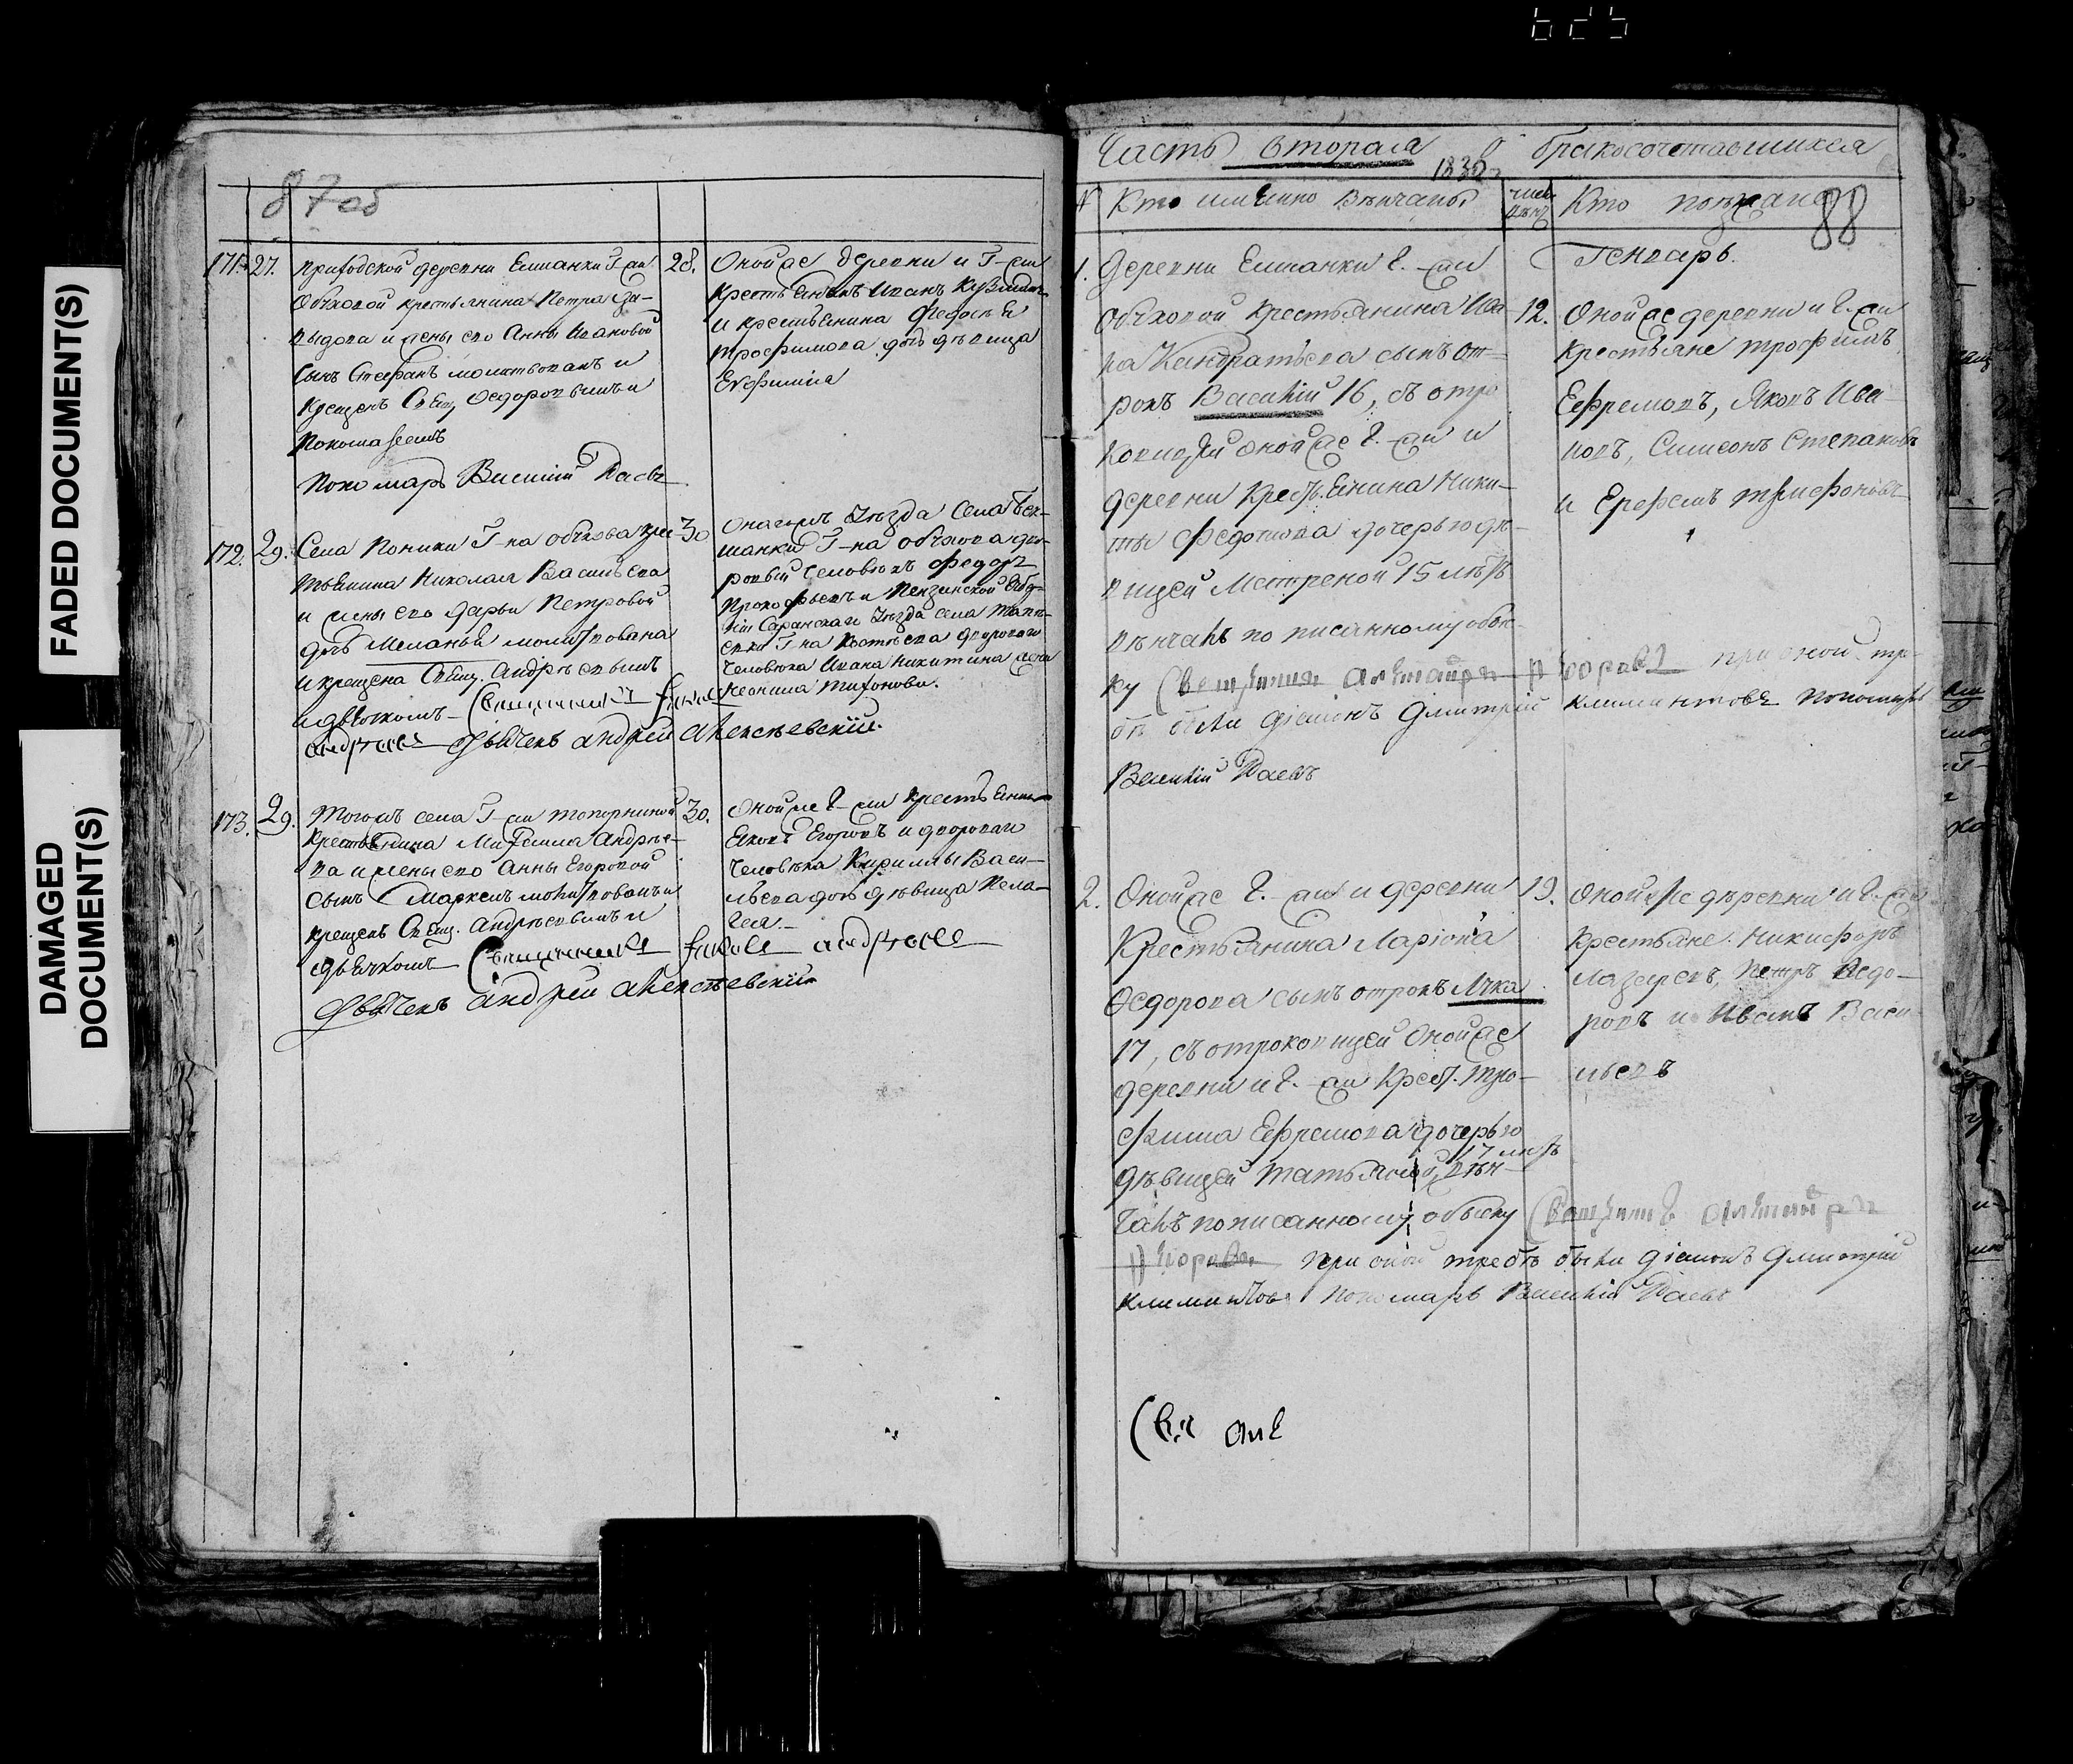 FADED DOCUMENT(S)
DAMAGED
DOCUMENT(S)
87об
171. 27.
приходской деревни Елшанки Г-жи
Обуховой крестьянина Петра Да-
выдова и жены его Анны Ивановой
сынъ Стефанъ молитвованъ и
крещенъ Свящ. Федоровымъ и
пономаремъ
Пономарь Василий Раевъ
28.
Оной же деревни и Г-жи
крестьянинъ Иванъ Кузьминъ
и крестьянина Федосея
Трофимова дочь девица
Евфимия
172. 29.
Села Поники Г-на Обухова крес-
тьянина Николая Васильева
и жены его Дарьи Петровой
дочь Меланья молитвована
и крещена Свящ. Андреевымъ
и дьячкомъ Священникъ
Дьячекъ Андрей Алексеевский
30
уезда села
шанки Г-на Обухова дво-
ровый человекъ Федоръ
Прокофьевъ и Пензинской Губер-
нии Саранскаго уезда села
Г-на двороваго
человека Ивана Никитина жена
Неонила Тихонова.
173. 29.
Тогожъ села Г-жи Топорниной
крестьянина Михаила Андрее-
ва и жены его Анны Егоровой
сынъ Маркелъ молитвованъ и
крещенъ Свящ. Андреевымъ и
дьячкомъ Священникъ
Дьячекъ Андрей Алексеевский
30.
Оной же Г-жи крестьянинъ
Яковъ Егоровъ и двороваго
человека Кирилы Васи-
льева дочь девица Пела-
гея.
Часть вторая о бракосочетавшихся
1832
88
№ Кто именно венчаны
число дней
Кто поезжане
Генварь.
1. Деревни Елшанки Г-жи
Обуховой крестьянина Ива-
на Кандратьева сынъ от-
рокъ Василий 16, съ отро-
ковицей оной же Г-жи и
деревни крестьянина Ники-
ты Федотова дочерью де-
вицей Матреной 15 летъ
венчанъ по писанному обыс-
ку Священникъ при оной тре-
бе были диаконъ Дмитрий Климентовъ пономарь
Василий Раевъ
12. Оной же деревни и Г-жи
крестьяне Трофимъ
Ефремовъ, Яковъ Ива-
новъ, Симеонъ Степановъ
и Ерофей Трифоновъ
2. Оной же Г-жи и деревни
крестьянина Лариона
Федорова сынъ отрокъ Лука
17, съ отроковицей оной же
деревни и Г-жи крест. Тро-
фима Ефремова дочерью
девицей Татьяной 17 летъ вен-
чанъ по писанному обыску Священникъ
при оной требе были диаконъ Дмитрий
Климентовъ Пономарь Василий Раевъ
19. Оной же деревни и Г-жи
крестьяне Никифоръ
Лазаревъ, Петръ Федо-
ровъ и Иванъ Васи-
льевъ